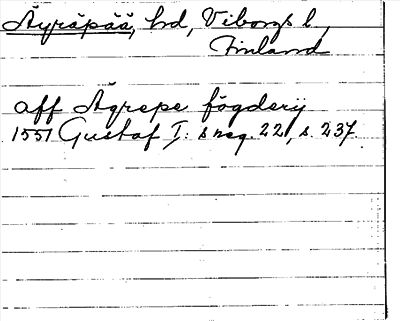 Äyräpää, hd, Viborgs l,
Finland
aff Ägrepe fögderij
1551 Gustaf I: s reg. 22, s. 237.